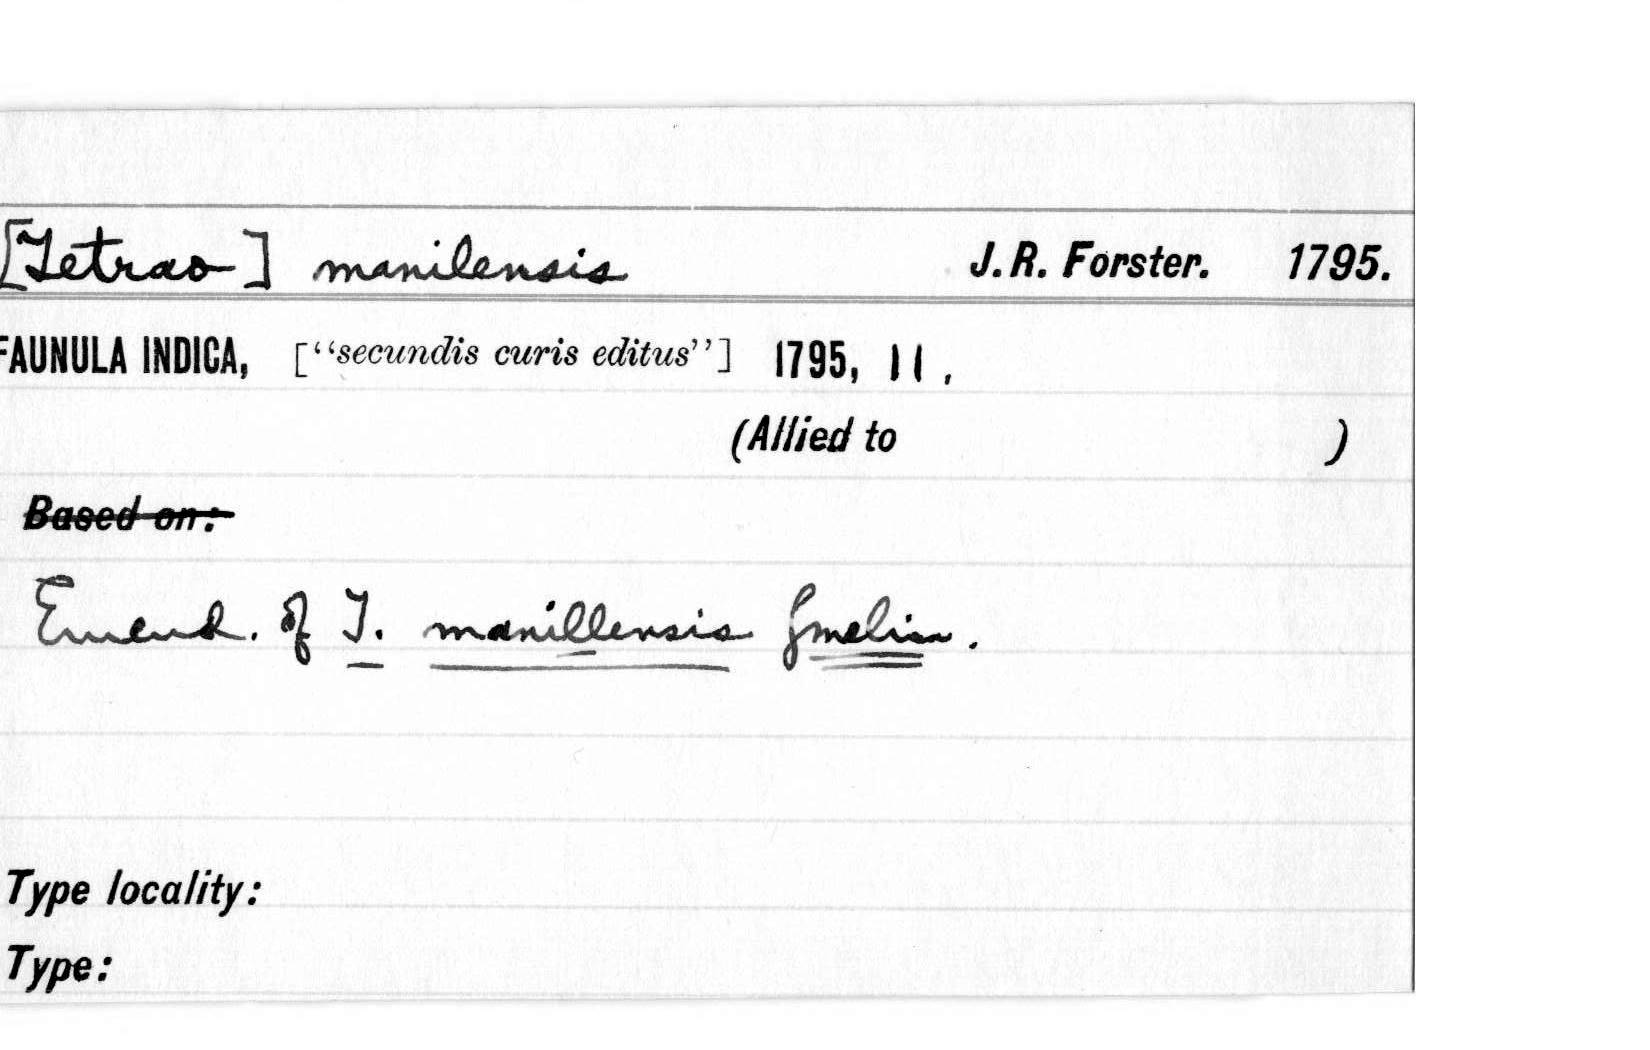 [Tetrao] manilensis J. R. Forster. 1795.
FAUNULA INDICA, ["secundis curis editus"] 1795, 11.
(Allied to )
Based on:
Emend. of T. manillensis Gmelin.
Type locality:
Type: